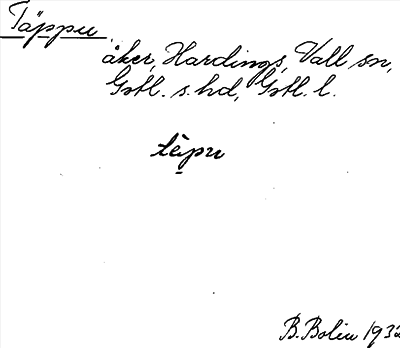 Täppu
åker, Hardings, Vall sn,
Gotl. s. hd, Gotl. l.
tèpu
B. Bolin 1932